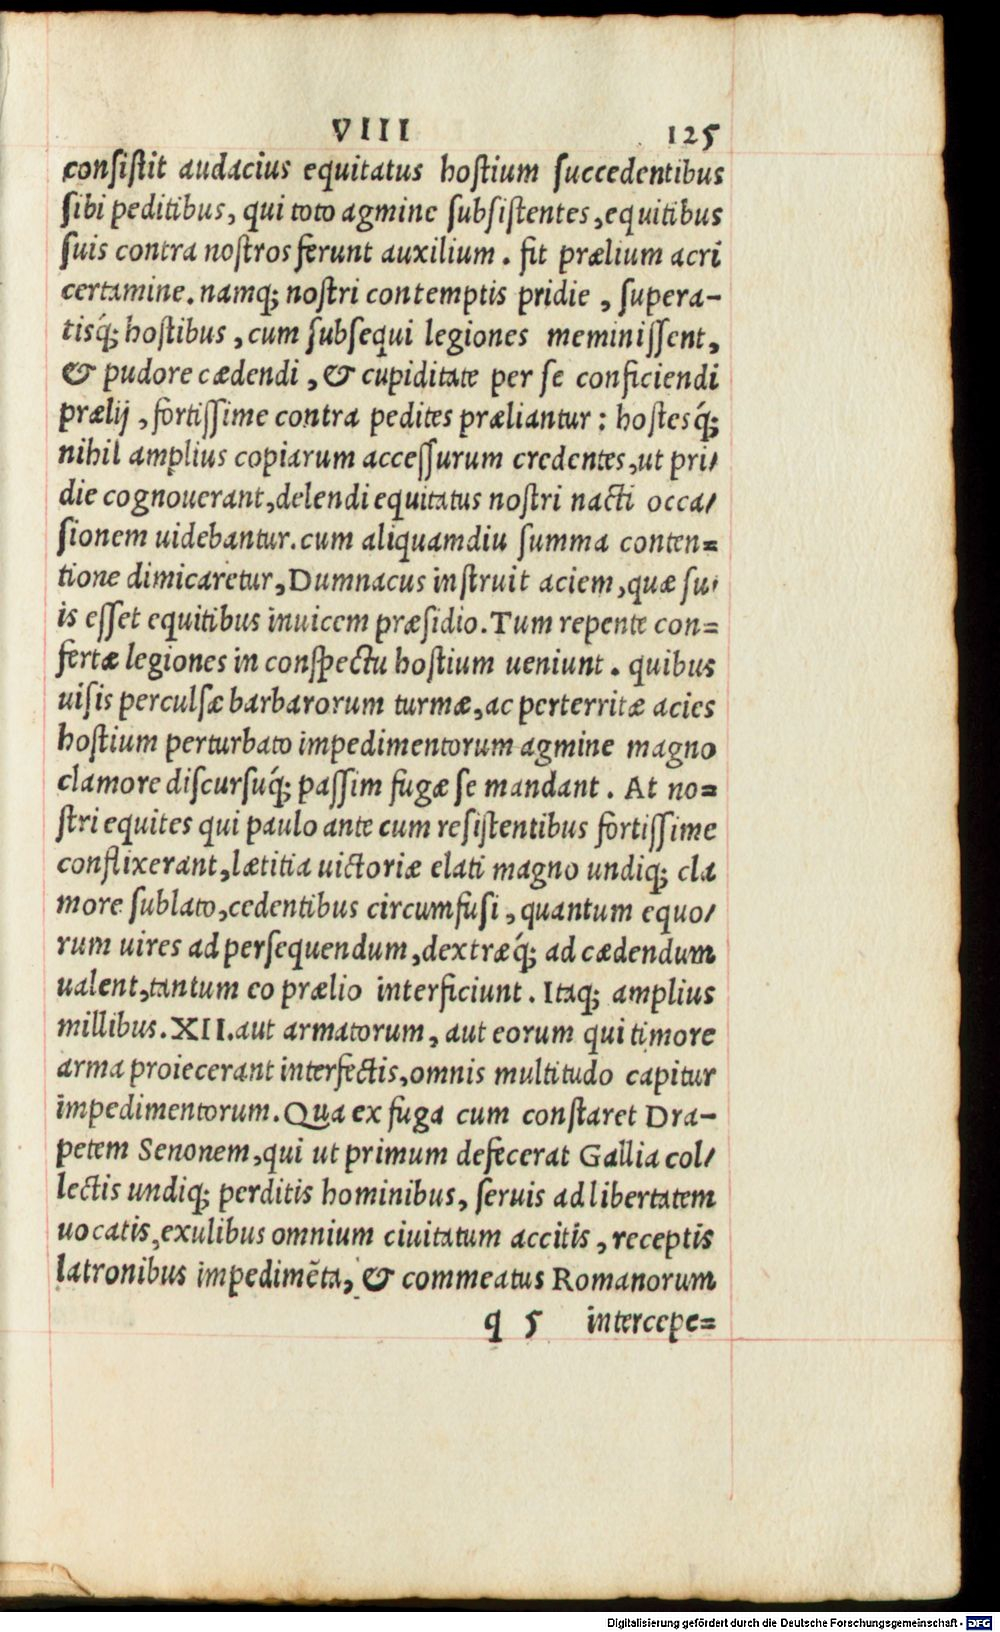 VIII 125
consistit audacius equitatus hostium succedentibus
sibi peditibus, qui toto agmine subsistentes, equitibus
suis contra nostros ferunt auxilium. fit prælium acri
certamine. namq; nostri contemptis pridie, supera-
tisq́; hostibus, cum subsequi legiones meminissent,
& pudore cædendi, & cupiditate per se conficiendi
prælij, fortissime contra pedites præliantur: hostesq́;
nihil amplius copiarum accessurum credentes, ut pri/
die cognouerant, delendi equitatus nostri nacti occa/
sionem uidebantur. cum aliquamdiu summa conten=
tione dimicaretur, Dumnacus instruit aciem, quæ su/
is esset equitibus inuicem præsidio. Tum repente con=
fertæ legiones in conspectu hostium ueniunt. quibus
uisis perculsæ barbarorum turmæ, ac perterritæ acies
hostium perturbato impedimentorum agmine magno
clamore discursuq́; passim fugæ se mandant. At no=
stri equites qui paulo ante cum resistentibus fortissime
conflixerant, lætitia uictoriæ elati magno undiq; cla
more sublato, cedentibus circumfusi, quantum equo/
rum uires ad persequendum, dextræq́; ad cædendum
ualent, tantum eo prælio interficiunt. Itaq; amplius
millibus. XII. aut armatorum, aut eorum qui timore
arma proiecerant interfectis, omnis multitudo capitur
impedimentorum. Qua ex fuga cum constaret Dra-
petem Senonem, qui ut primum defecerat Gallia col/
lectis undiq; perditis hominibus, seruis ad libertatem
uocatis, exulibus omnium ciuitatum accitis, receptis
latronibus impedimẽta, & commeatus Romanorum
q 5 intercepe=
Digitalisierung gefördert durch die Deutsche Forschungsgemeinschaft - DFG